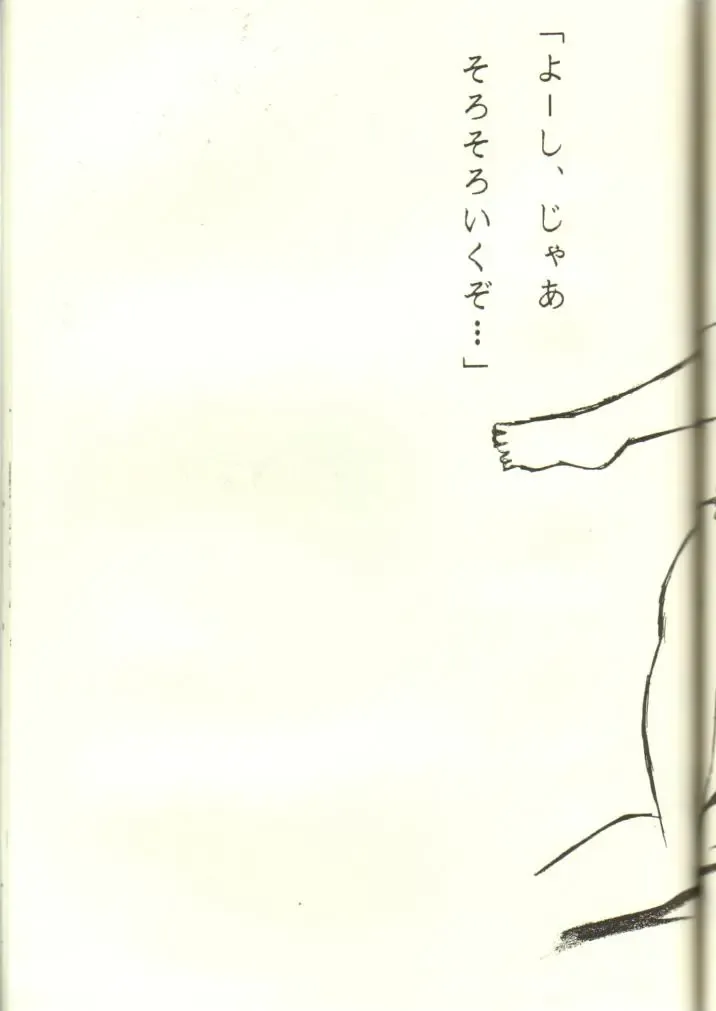 「よーし、じゃあ
そろそろいくぞ…」